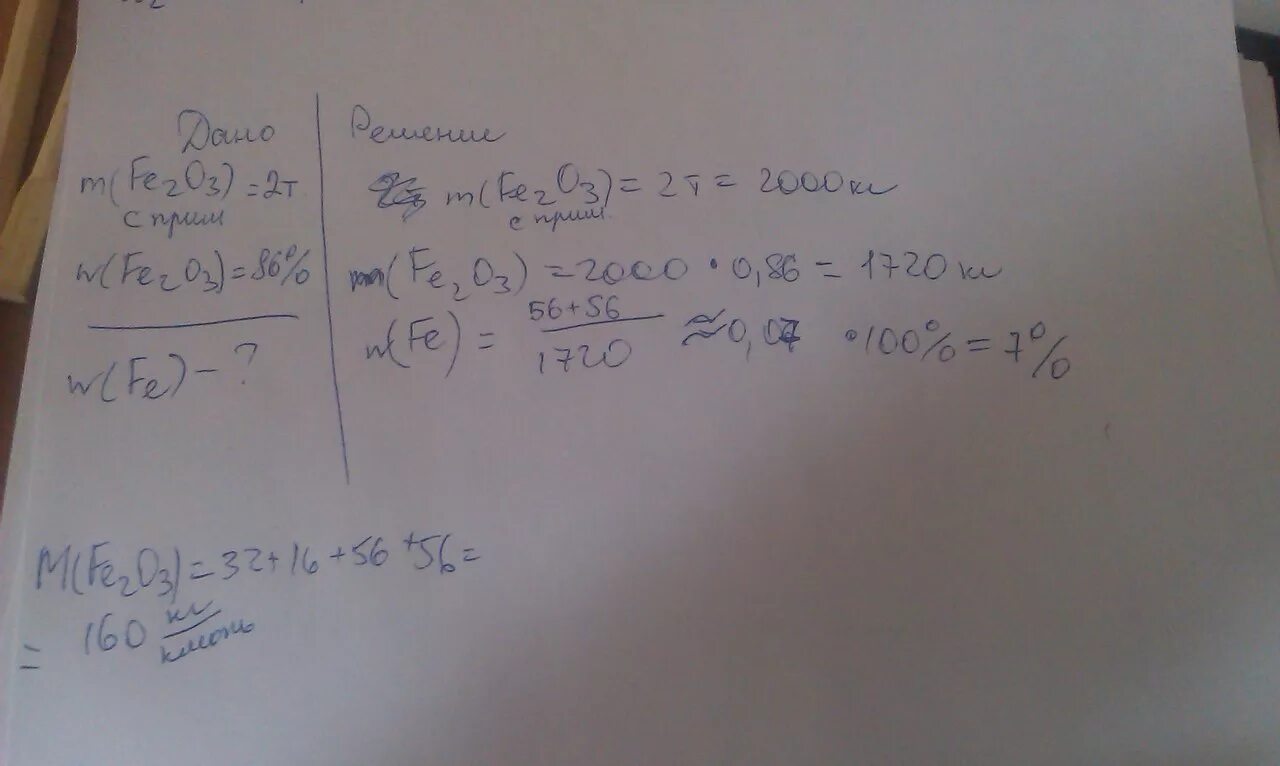 Дано
m(Fe₂O₃) = 2т
с прим
w(Fe₂O₃) = 86%
w(Fe) - ?
Решение
m(Fe₂O₃) = 2т = 2000 кг
с прим.
m(Fe₂O₃) = 2000 · 0,86 = 1720 кг
w(Fe) = 56+56 / 1720 ≈ 0,07 · 100% = 7%
M(Fe₂O₃) = 32 + 16 + 56 + 56 =
= 160 кг/кмоль